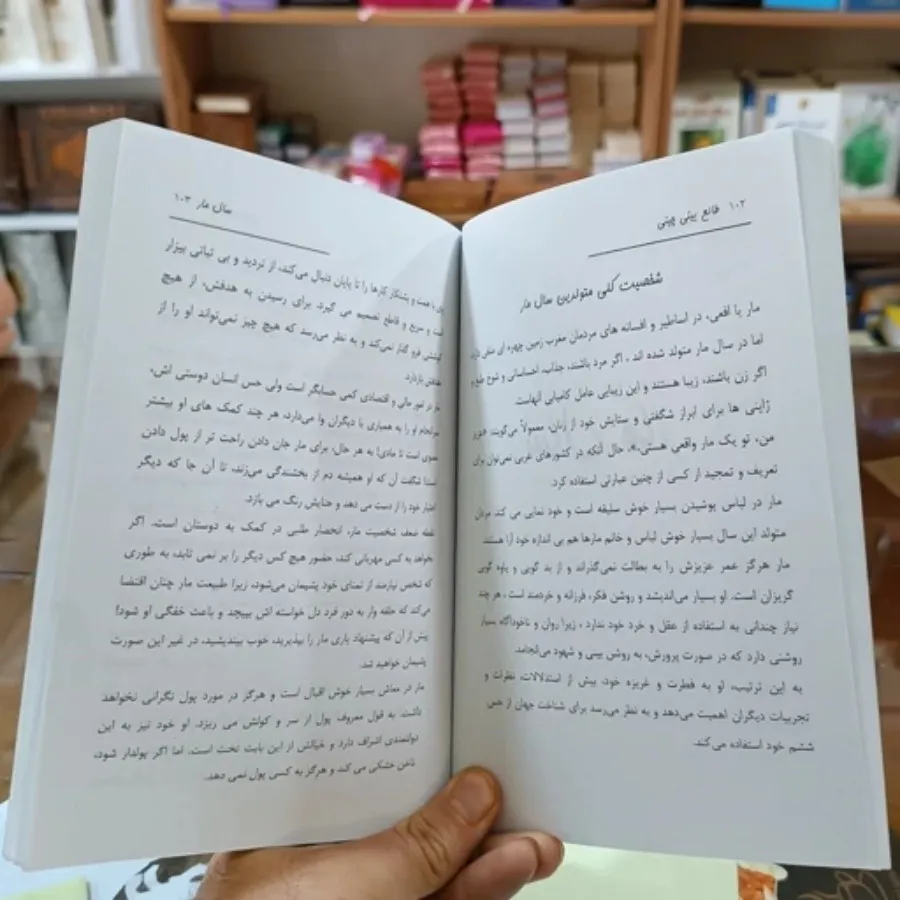 ۱۰۲ طالع بینی چینی
شخصیت کلی متولدین سال مار
مار یا افعی، در اساطیر و افسانه های مردمان مغرب زمین چهره ای منفی دارد
اما در سال مار متولد شده اند ، اگر مرد باشند، جذاب، احساساتی و شوخ طبع و
اگر زن باشند، زیبا هستند و این زیبایی عامل کامیابی آنهاست.
ژاپنی ها برای ابراز شگفتی و ستایش خود از زنان، معمولاً می‌گویند: عزیز
من، تو یک مار واقعی هستی.»، حال آنکه در کشورهای غربی نمی‌توان برای
تعریف و تمجید از کسی از چنین عبارتی استفاده کرد.
مار در لباس پوشیدن بسیار خوش سلیقه است و خود نمایی می کند. مردان
متولد این سال بسیار خوش لباس و خانم مارها هم بی اندازه خود آرا هستند.
مار هرگز عمر عزیزش را به بطالت نمی‌گذراند و از بد گویی و یاوه گویی
گریزان است. او بسیار می‌اندیشد و روشن فکر، فرزانه و خردمند است ، هر چند
نیاز چندانی به استفاده از عقل و خرد خود ندارد ، زیرا روان و ناخودآگاه بسیار
روشنی دارد که در صورت پرورش، به روشن بینی و شهود می‌انجامد.
به این ترتیب، او به فطرت و غریزه خود، بیش از استدلالات، نظرات و
تجربیات دیگران اهمیت می‌دهد و به نظر می‌رسد برای شناخت جهان از حس
ششم خود استفاده می‌کند.
سال مار ۱۰۳
با همت و پشتکار کارها را تا پایان دنبال می‌کند، از تردید و بی ثباتی بیزار
است و سریع و قاطع تصمیم می گیرد. برای رسیدن به هدفش، از هیچ
کوششی فرو گذار نمی‌کند و به نظر می‌رسد که هیچ چیز نمی‌تواند او را از
هدفش بازدارد.
مار در امور مالی و اقتصادی کمی حسابگر است ولی حس انسان دوستی اش،
سرانجام او را به همیاری با دیگران وا می‌دارد، هر چند کمک های او بیشتر
معنوی است تا مادی! به هر حال، برای مار جان دادن راحت تر از پول دادن
است! شگفت آن که او همیشه دم از بخشندگی می‌زند، تا آن جا که دیگر
اعتبار خود را از دست می دهد و حنایش رنگ می بازد.
نقطه ضعف شخصیت مار، انحصار طلبی در کمک به دوستان است. اگر
بخواهد به کسی مهربانی کند، حضور هیچ کس دیگر را بر نمی تابد، به طوری
که شخص نیازمند از تمنای خود پشیمان می‌شود، زیرا طبیعت مار چنان اقتضا
می‌کند که حلقه وار به دور فرد دل خواسته اش بپیچد و باعث خفگی او شود!
پیش از آن که پیشنهاد یاری مار را بپذیرید، خوب بیندیشید، در غیر این صورت
پشیمان خواهید شد.
مار در معاش بسیار خوش اقبال است و هرگز در مورد پول نگرانی نخواهد
داشت. به قول معروف پول از سر و کولش می ریزد. او خود نیز به این
دولتمندی اشراف دارد و خیالش از این بابت تخت است. اما اگر پولدار شود،
ناخن خشکی می کند و هرگز به کسی پول نمی دهد.